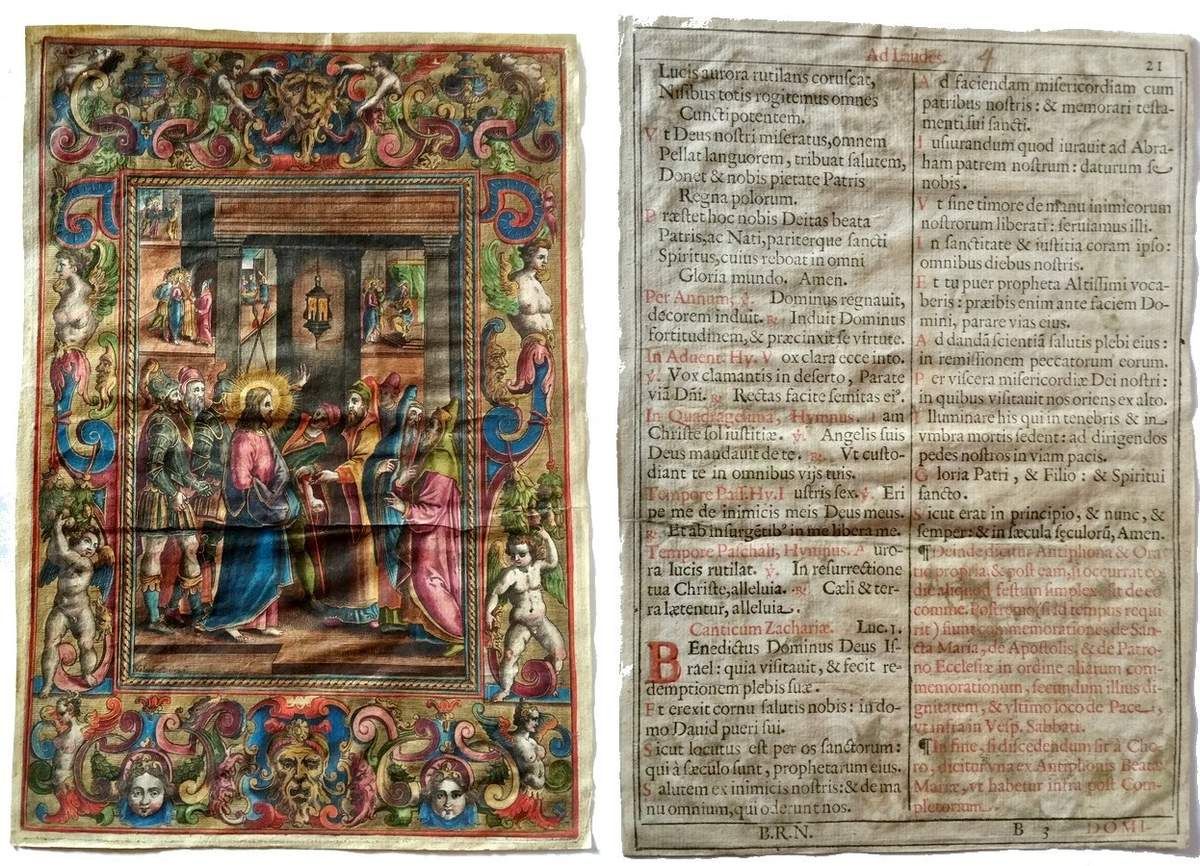 Ad Laudes.
21
Lucis aurora rutilans coruscat,
Nisibus totis rogitemus omnes
Cuncti potentem.
Vt Deus nostri miseratus, omnem
Pellat languorem, tribuat salutem,
Donet & nobis pietate Patris
Regna polorum.
Præstet hoc nobis Deitas beata
Patris, ac Nati, pariterque sancti
Spiritus, cuius reboat in omni
Gloria mundo. Amen.
Per Annum, ℣. Dominus regnauit,
decorem induit. ℟. Induit Dominus
fortitudinem, & præcinxit se virtute.
In Aduent. Hy. Vox clara ecce into.
℣. Vox clamantis in deserto, Parate
viã Dni. ℟. Rectas facite semitas ei⁹.
In Quadragesima, Hymnus. Iam
Christe sol iustitiæ. ℣. Angelis suis
Deus mandauit de te. ℟. Vt custo-
diant te in omnibus vijs tuis.
Tempore Pass. Hy. Iustris sex. ℣. Eri
pe me de inimicis meis Deus meus.
℟. Et ab insurgẽtib⁹ in me libera me.
Tempore Paschali, Hymnus. Auro-
ra lucis rutilat. ℣. In resurrectione
tua Christe, alleluia. ℟. Cæli & ter-
ra lætentur, alleluia.
Canticum Zachariæ. Luc. 1.
BEnedictus Dominus Deus Is-
rael: quia visitauit, & fecit re-
demptionem plebis suæ.
Et erexit cornu salutis nobis: in do-
mo Dauid pueri sui.
Sicut locutus est per os sanctorum:
qui à sæculo sunt, prophetarum eius.
Salutem ex inimicis nostris: & de ma
nu omnium, qui oderunt nos.
Ad faciendam misericordiam cum
patribus nostris: & memorari testa-
menti sui sancti.
Iusiurandum quod iurauit ad Abra-
ham patrem nostrum: daturum se
nobis.
Vt sine timore de manu inimicorum
nostrorum liberati: seruiamus illi.
In sanctitate & iustitia coram ipso:
omnibus diebus nostris.
Et tu puer propheta Altissimi voca-
beris: præibis enim ante faciem Do-
mini, parare vias eius.
Ad dandã scientiã salutis plebi eius:
in remissionem peccatorum eorum.
Per viscera misericordiæ Dei nostri:
in quibus visitauit nos oriens ex alto.
Illuminare his qui in tenebris & in
vmbra mortis sedent: ad dirigendos
pedes nostros in viam pacis.
Gloria Patri, & Filio: & Spiritui
sancto.
Sicut erat in principio, & nunc, &
semper: & in sæcula sęculorũ, Amen.
¶ Deinde dicitur Antiphona & Ora
tio propria, & post eam, si occurrat eo
die aliquod festum simplex, fit de eo
comme. Postremo (si id tempus requi
rit) fiunt commemorationes de San-
cta Maria, de Apostolis, & de Patro-
no Ecclesiæ in ordine aliarum com-
memorationum, secundum illius di-
gnitatem, & vltimo loco de Pace,
vt infra in Vesp. Sabbati.
¶ In fine, si discedendum sit à Cho-
ro, dicitur vna ex Antiphonis Beatæ
Mariæ, vt habetur infra post Com-
pletorium.
B.R.N.
B 3
DOMI-